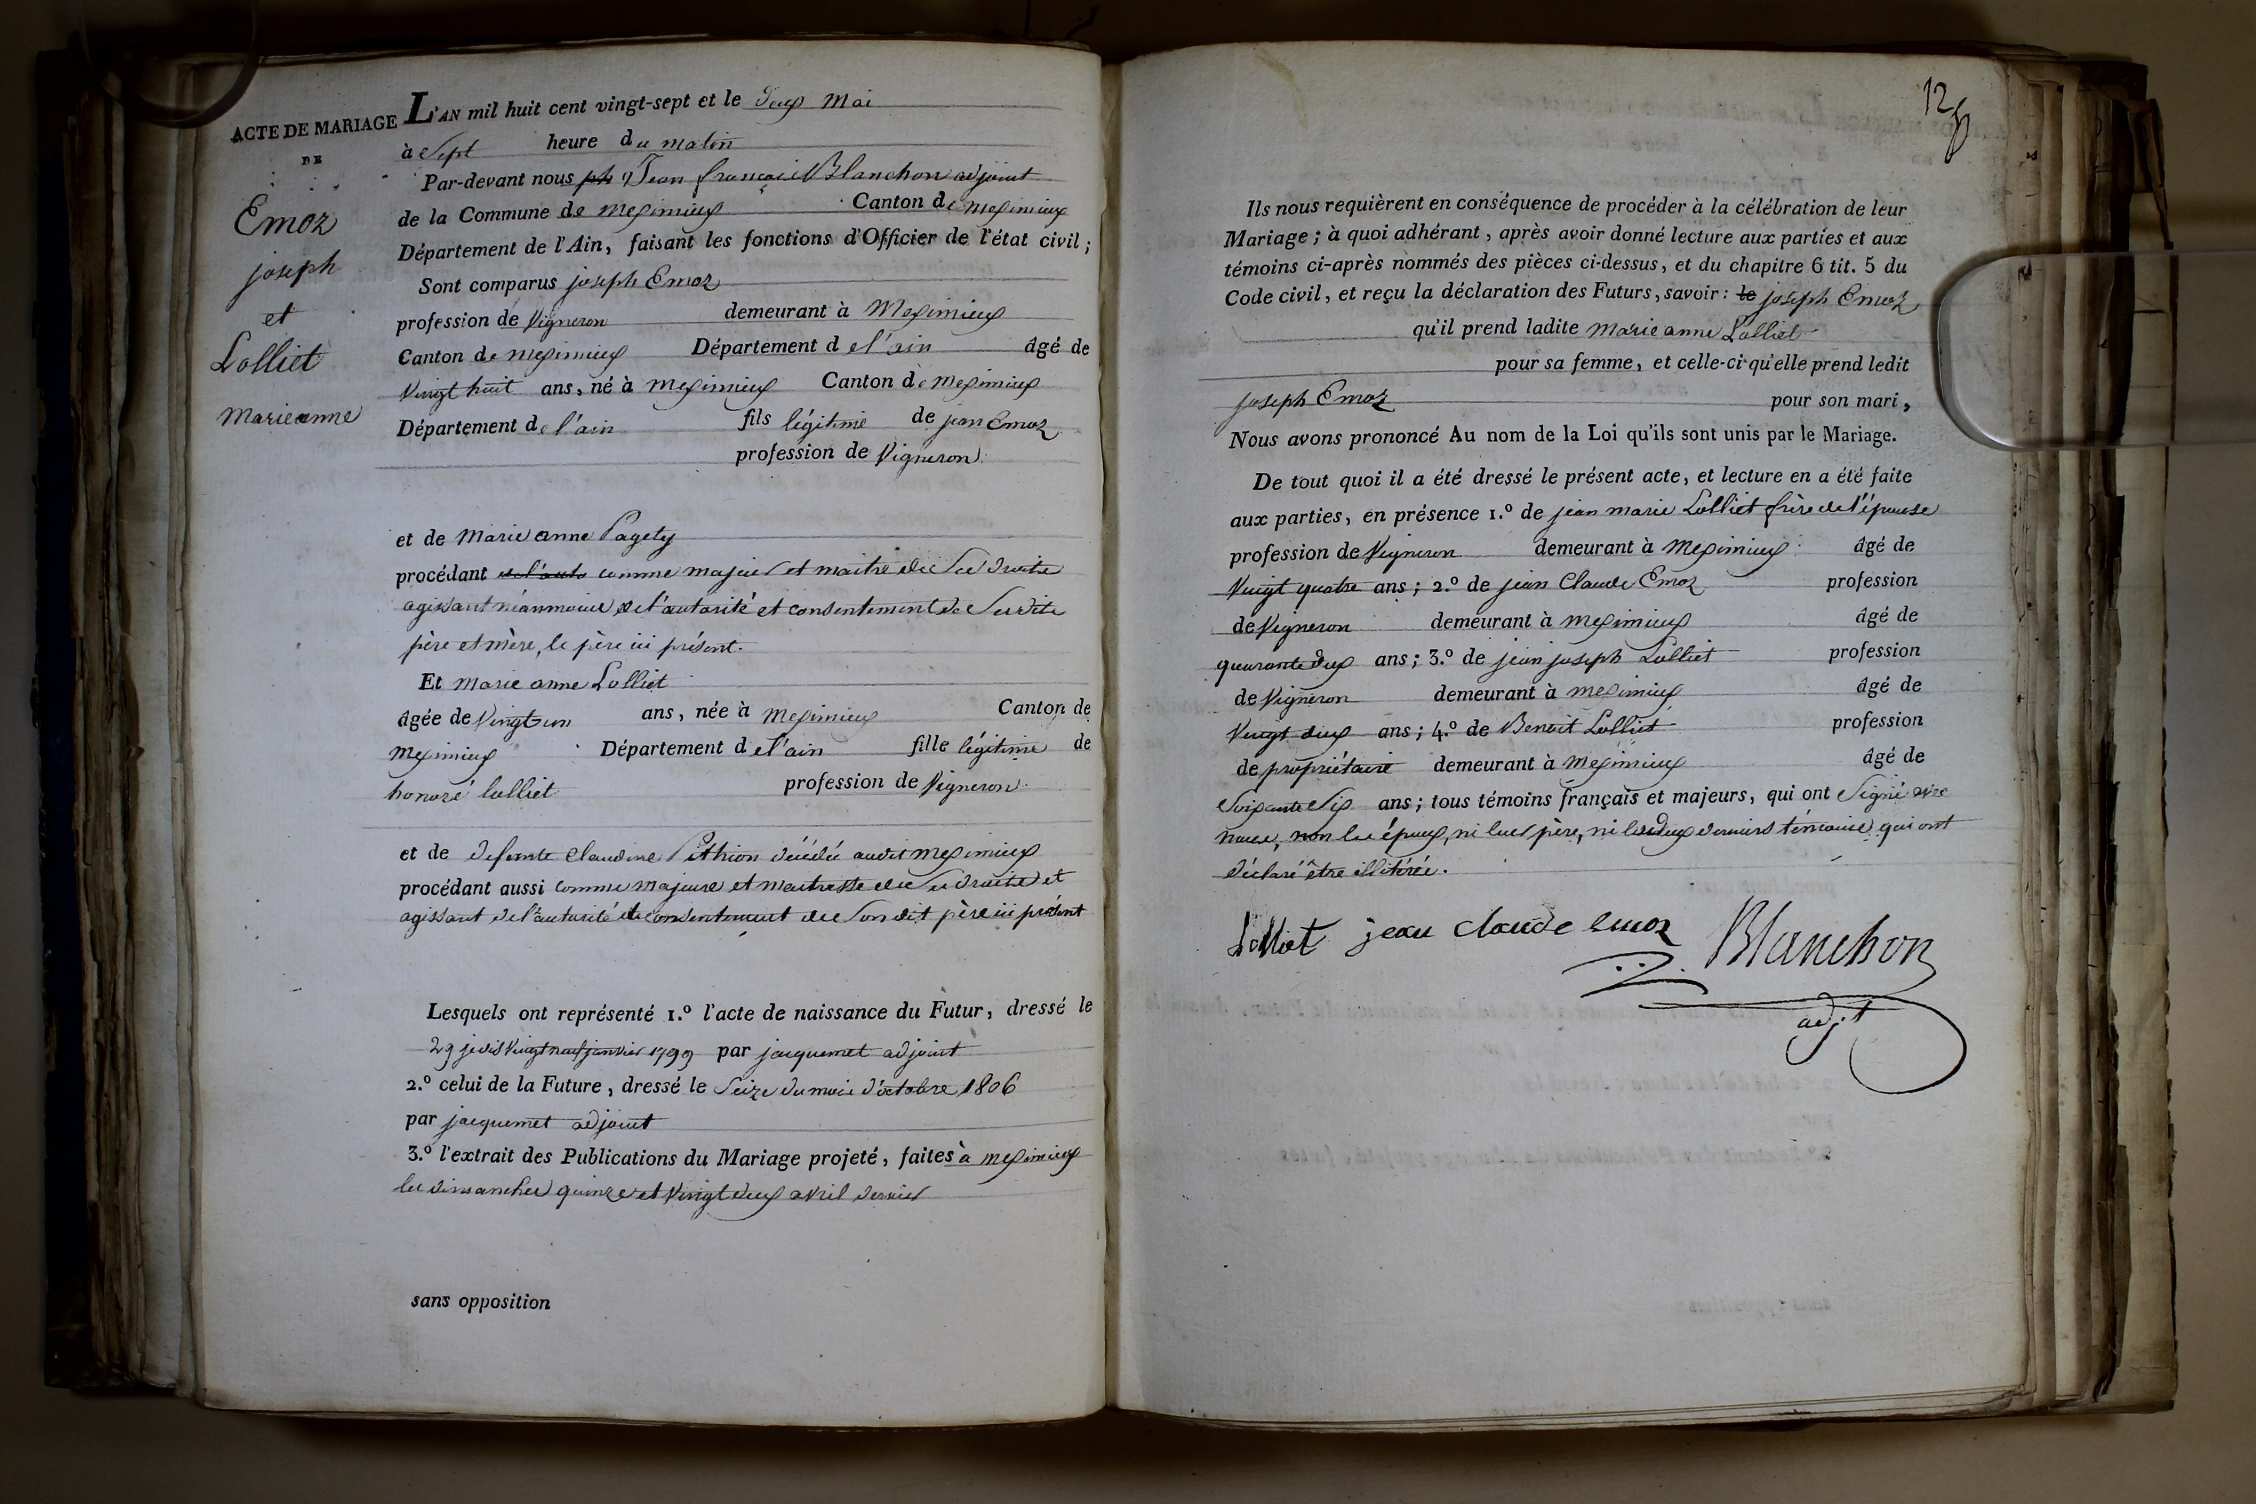 ACTE DE MARIAGE
DE
Emoz
joseph
et
Lolliet
Marie anne
L'AN mil huit cent vingt-sept et le Deux Mai
à Sept heure du matin
Par-devant nous Jean françois Blanchon adjoint
de la Commune de meximieux Canton de meximieux
Département de l'Ain, faisant les fonctions d'Officier de l'état civil;
Sont comparus joseph Emoz
profession de Vigneron demeurant à Meximieux
Canton de meximieux Département de l'ain âgé de
Vingt huit ans, né à meximieux Canton de meximieux
Département de l'ain fils légitime de jean Emoz
profession de Vigneron
et de Marie anne Pagety
procédant de l'auto comme majeur et maitre de Ses droits
agissant néanmoins de l'autorité et consentement de Sesdits
père et mère, le père ici présent.
Et Marie anne Lolliet
âgée de Vingt un ans, née à meximieux Canton de
meximieux Département de l'ain fille légitime de
honoré lolliet profession de Vigneron
et de defunte Claudine Pithion décédée audit meximieux
procédant aussi comme majeure et maitresse de Ses droits et
agissant de l'autorité et consentement de Son dit père ici présent
Lesquels ont représenté 1.º l'acte de naissance du Futur, dressé le
29 jedis Vingt neuf janvier 1799 par jacquemet adjoint
2.º celui de la Future, dressé le Seize du mois d'octobre 1806
par jacquemet adjoint
3.º l'extrait des Publications du Mariage projeté, faites à meximieux
les dimanches quinze et Vingt deux avril dernier
sans opposition
12
Ils nous requièrent en conséquence de procéder à la célébration de leur
Mariage; à quoi adhérant, après avoir donné lecture aux parties et aux
témoins ci-après nommés des pièces ci-dessus, et du chapitre 6 tit. 5 du
Code civil, et reçu la déclaration des Futurs, savoir: le joseph Emoz
qu'il prend ladite Marie anne Lolliet
pour sa femme, et celle-ci qu'elle prend ledit
joseph Emoz pour son mari,
Nous avons prononcé Au nom de la Loi qu'ils sont unis par le Mariage.
De tout quoi il a été dressé le présent acte, et lecture en a été faite
aux parties, en présence 1.º de jean marie Lolliet frère de l'épouse
profession de Vigneron demeurant à Meximieux âgé de
Vingt quatre ans; 2.º de jean Claude Emoz profession
de Vigneron demeurant à meximieux âgé de
quarante deux ans; 3.º de jean joseph Lolliet profession
de Vigneron demeurant à meximieux âgé de
Vingt deux ans; 4.º de Benoit Lolliet profession
de propriétaire demeurant à Meximieux âgé de
Soixante Six ans; tous témoins français et majeurs, qui ont Signé avec
nous, non les époux, ni leurs père, ni les deux derniers témoins qui ont
déclaré être illitérés.
Lolliet jean claude emoz Blanchon
adj.t